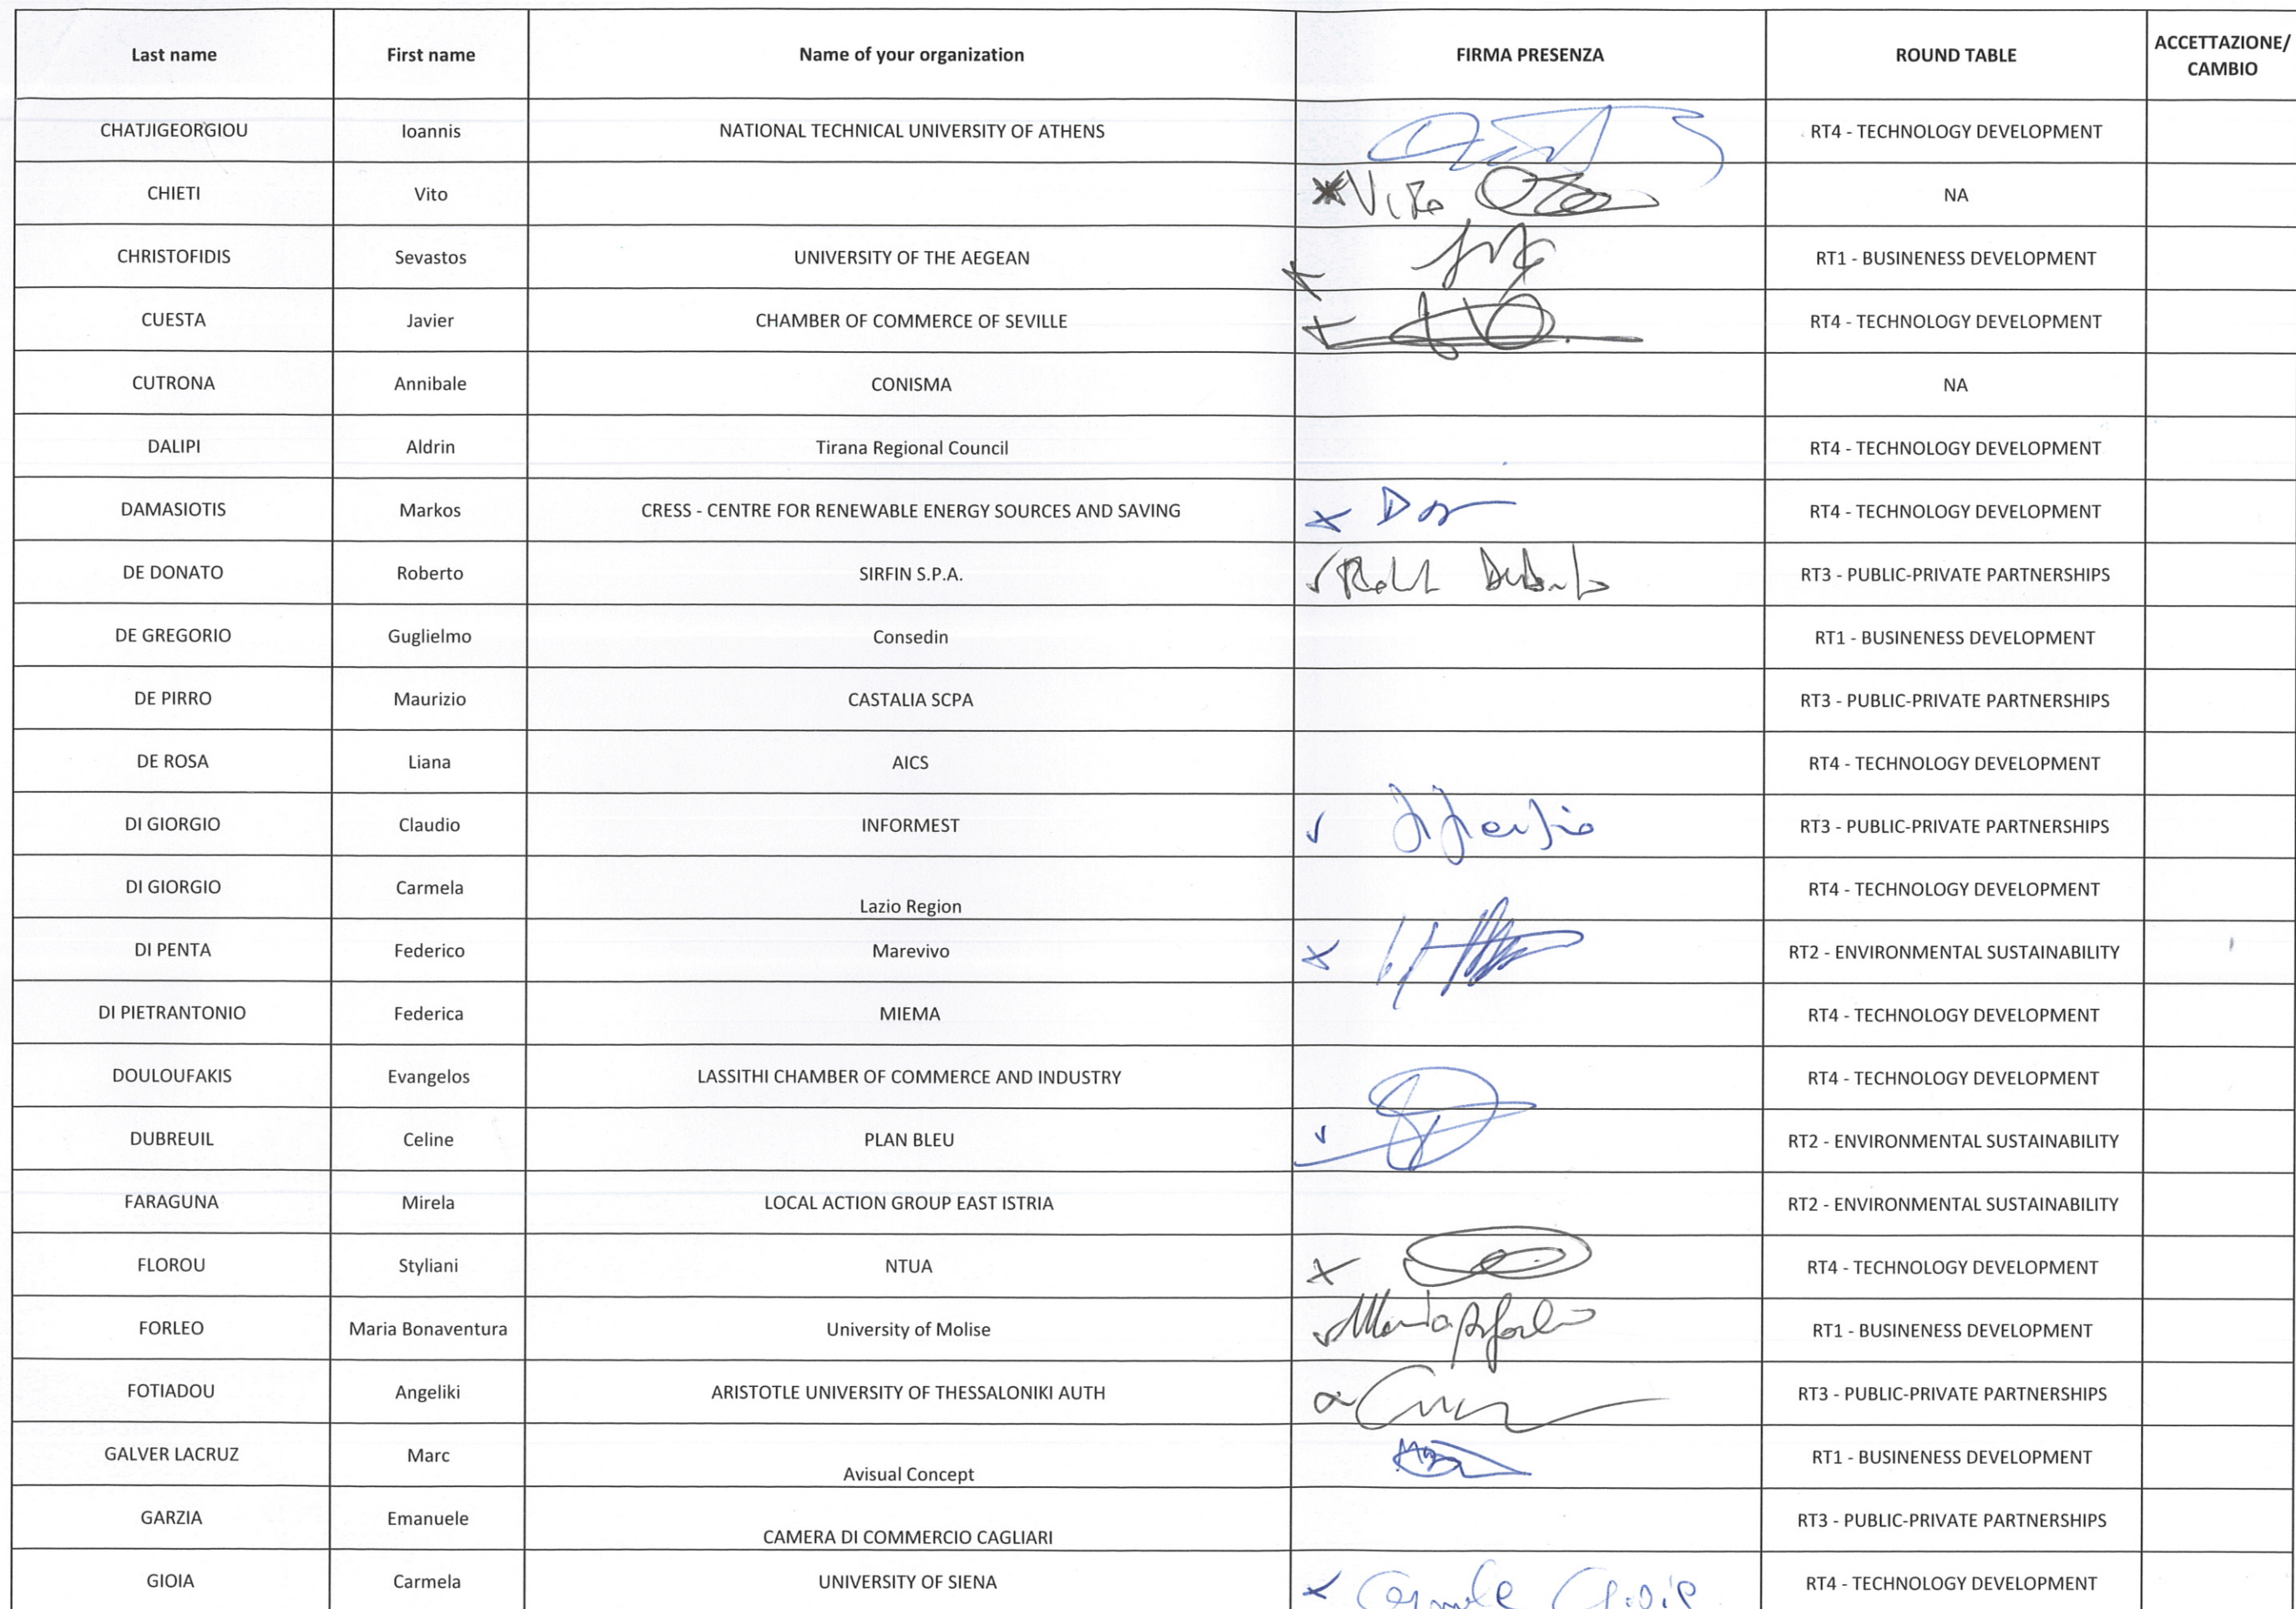 Last name First name Name of your organization FIRMA PRESENZA ROUND TABLE ACCETTAZIONE/
CAMBIO
CHATJIGEORGIOU Ioannis NATIONAL TECHNICAL UNIVERSITY OF ATHENS RT4 - TECHNOLOGY DEVELOPMENT
CHIETI Vito Vito NA
CHRISTOFIDIS Sevastos UNIVERSITY OF THE AEGEAN RT1 - BUSINENESS DEVELOPMENT
CUESTA Javier CHAMBER OF COMMERCE OF SEVILLE RT4 - TECHNOLOGY DEVELOPMENT
CUTRONA Annibale CONISMA NA
DALIPI Aldrin Tirana Regional Council RT4 - TECHNOLOGY DEVELOPMENT
DAMASIOTIS Markos CRESS - CENTRE FOR RENEWABLE ENERGY SOURCES AND SAVING RT4 - TECHNOLOGY DEVELOPMENT
DE DONATO Roberto SIRFIN S.P.A. RT3 - PUBLIC-PRIVATE PARTNERSHIPS
DE GREGORIO Guglielmo Consedin RT1 - BUSINENESS DEVELOPMENT
DE PIRRO Maurizio CASTALIA SCPA RT3 - PUBLIC-PRIVATE PARTNERSHIPS
DE ROSA Liana AICS RT4 - TECHNOLOGY DEVELOPMENT
DI GIORGIO Claudio INFORMEST RT3 - PUBLIC-PRIVATE PARTNERSHIPS
DI GIORGIO Carmela Lazio Region RT4 - TECHNOLOGY DEVELOPMENT
DI PENTA Federico Marevivo RT2 - ENVIRONMENTAL SUSTAINABILITY
DI PIETRANTONIO Federica MIEMA RT4 - TECHNOLOGY DEVELOPMENT
DOULOUFAKIS Evangelos LASSITHI CHAMBER OF COMMERCE AND INDUSTRY RT4 - TECHNOLOGY DEVELOPMENT
DUBREUIL Celine PLAN BLEU RT2 - ENVIRONMENTAL SUSTAINABILITY
FARAGUNA Mirela LOCAL ACTION GROUP EAST ISTRIA RT2 - ENVIRONMENTAL SUSTAINABILITY
FLOROU Styliani NTUA RT4 - TECHNOLOGY DEVELOPMENT
FORLEO Maria Bonaventura University of Molise RT1 - BUSINENESS DEVELOPMENT
FOTIADOU Angeliki ARISTOTLE UNIVERSITY OF THESSALONIKI AUTH RT3 - PUBLIC-PRIVATE PARTNERSHIPS
GALVER LACRUZ Marc Avisual Concept RT1 - BUSINENESS DEVELOPMENT
GARZIA Emanuele CAMERA DI COMMERCIO CAGLIARI RT3 - PUBLIC-PRIVATE PARTNERSHIPS
GIOIA Carmela UNIVERSITY OF SIENA Carmela Gioia RT4 - TECHNOLOGY DEVELOPMENT